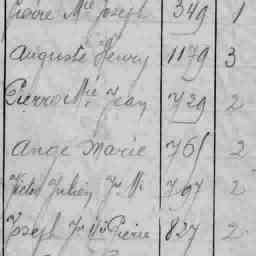 Pierre Mie Joseph 349 1
Auguste Henry 1179 3
Pierre Mie Jean 729 2
Ange Marie 761 2
Victor Julien Fr. M. 767 2
Joseph Fr Mie Pierre 827 2